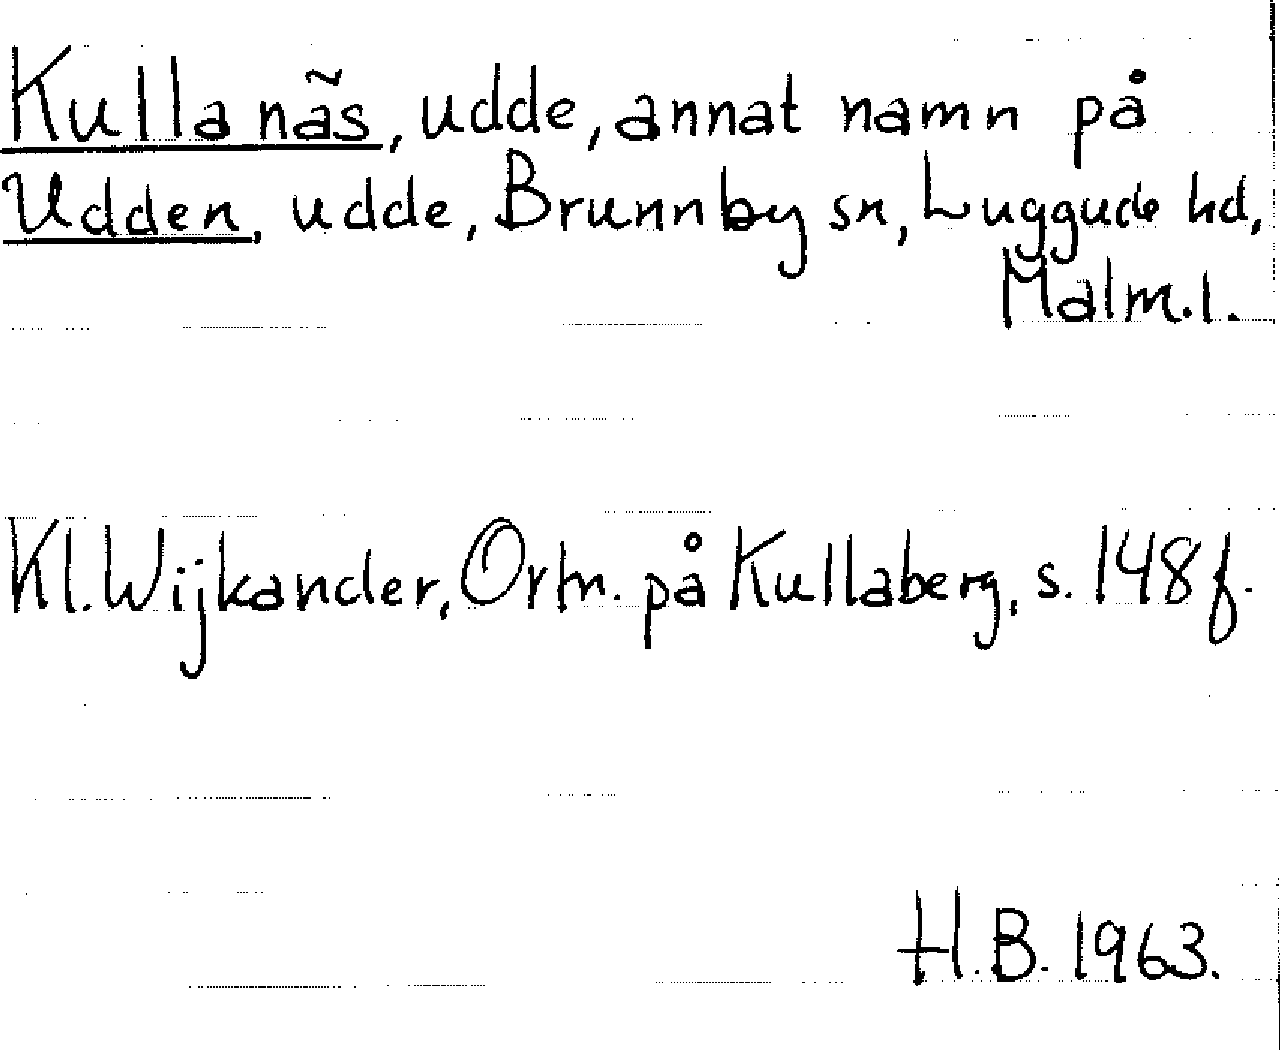 Kullanäs, udde, annat namn på
Udden, udde, Brunnby sn, Luggude hd,
Malm.l.
Kl. Wijkander, Ortn. på Kullaberg, s. 148 f.
H.B. 1963.